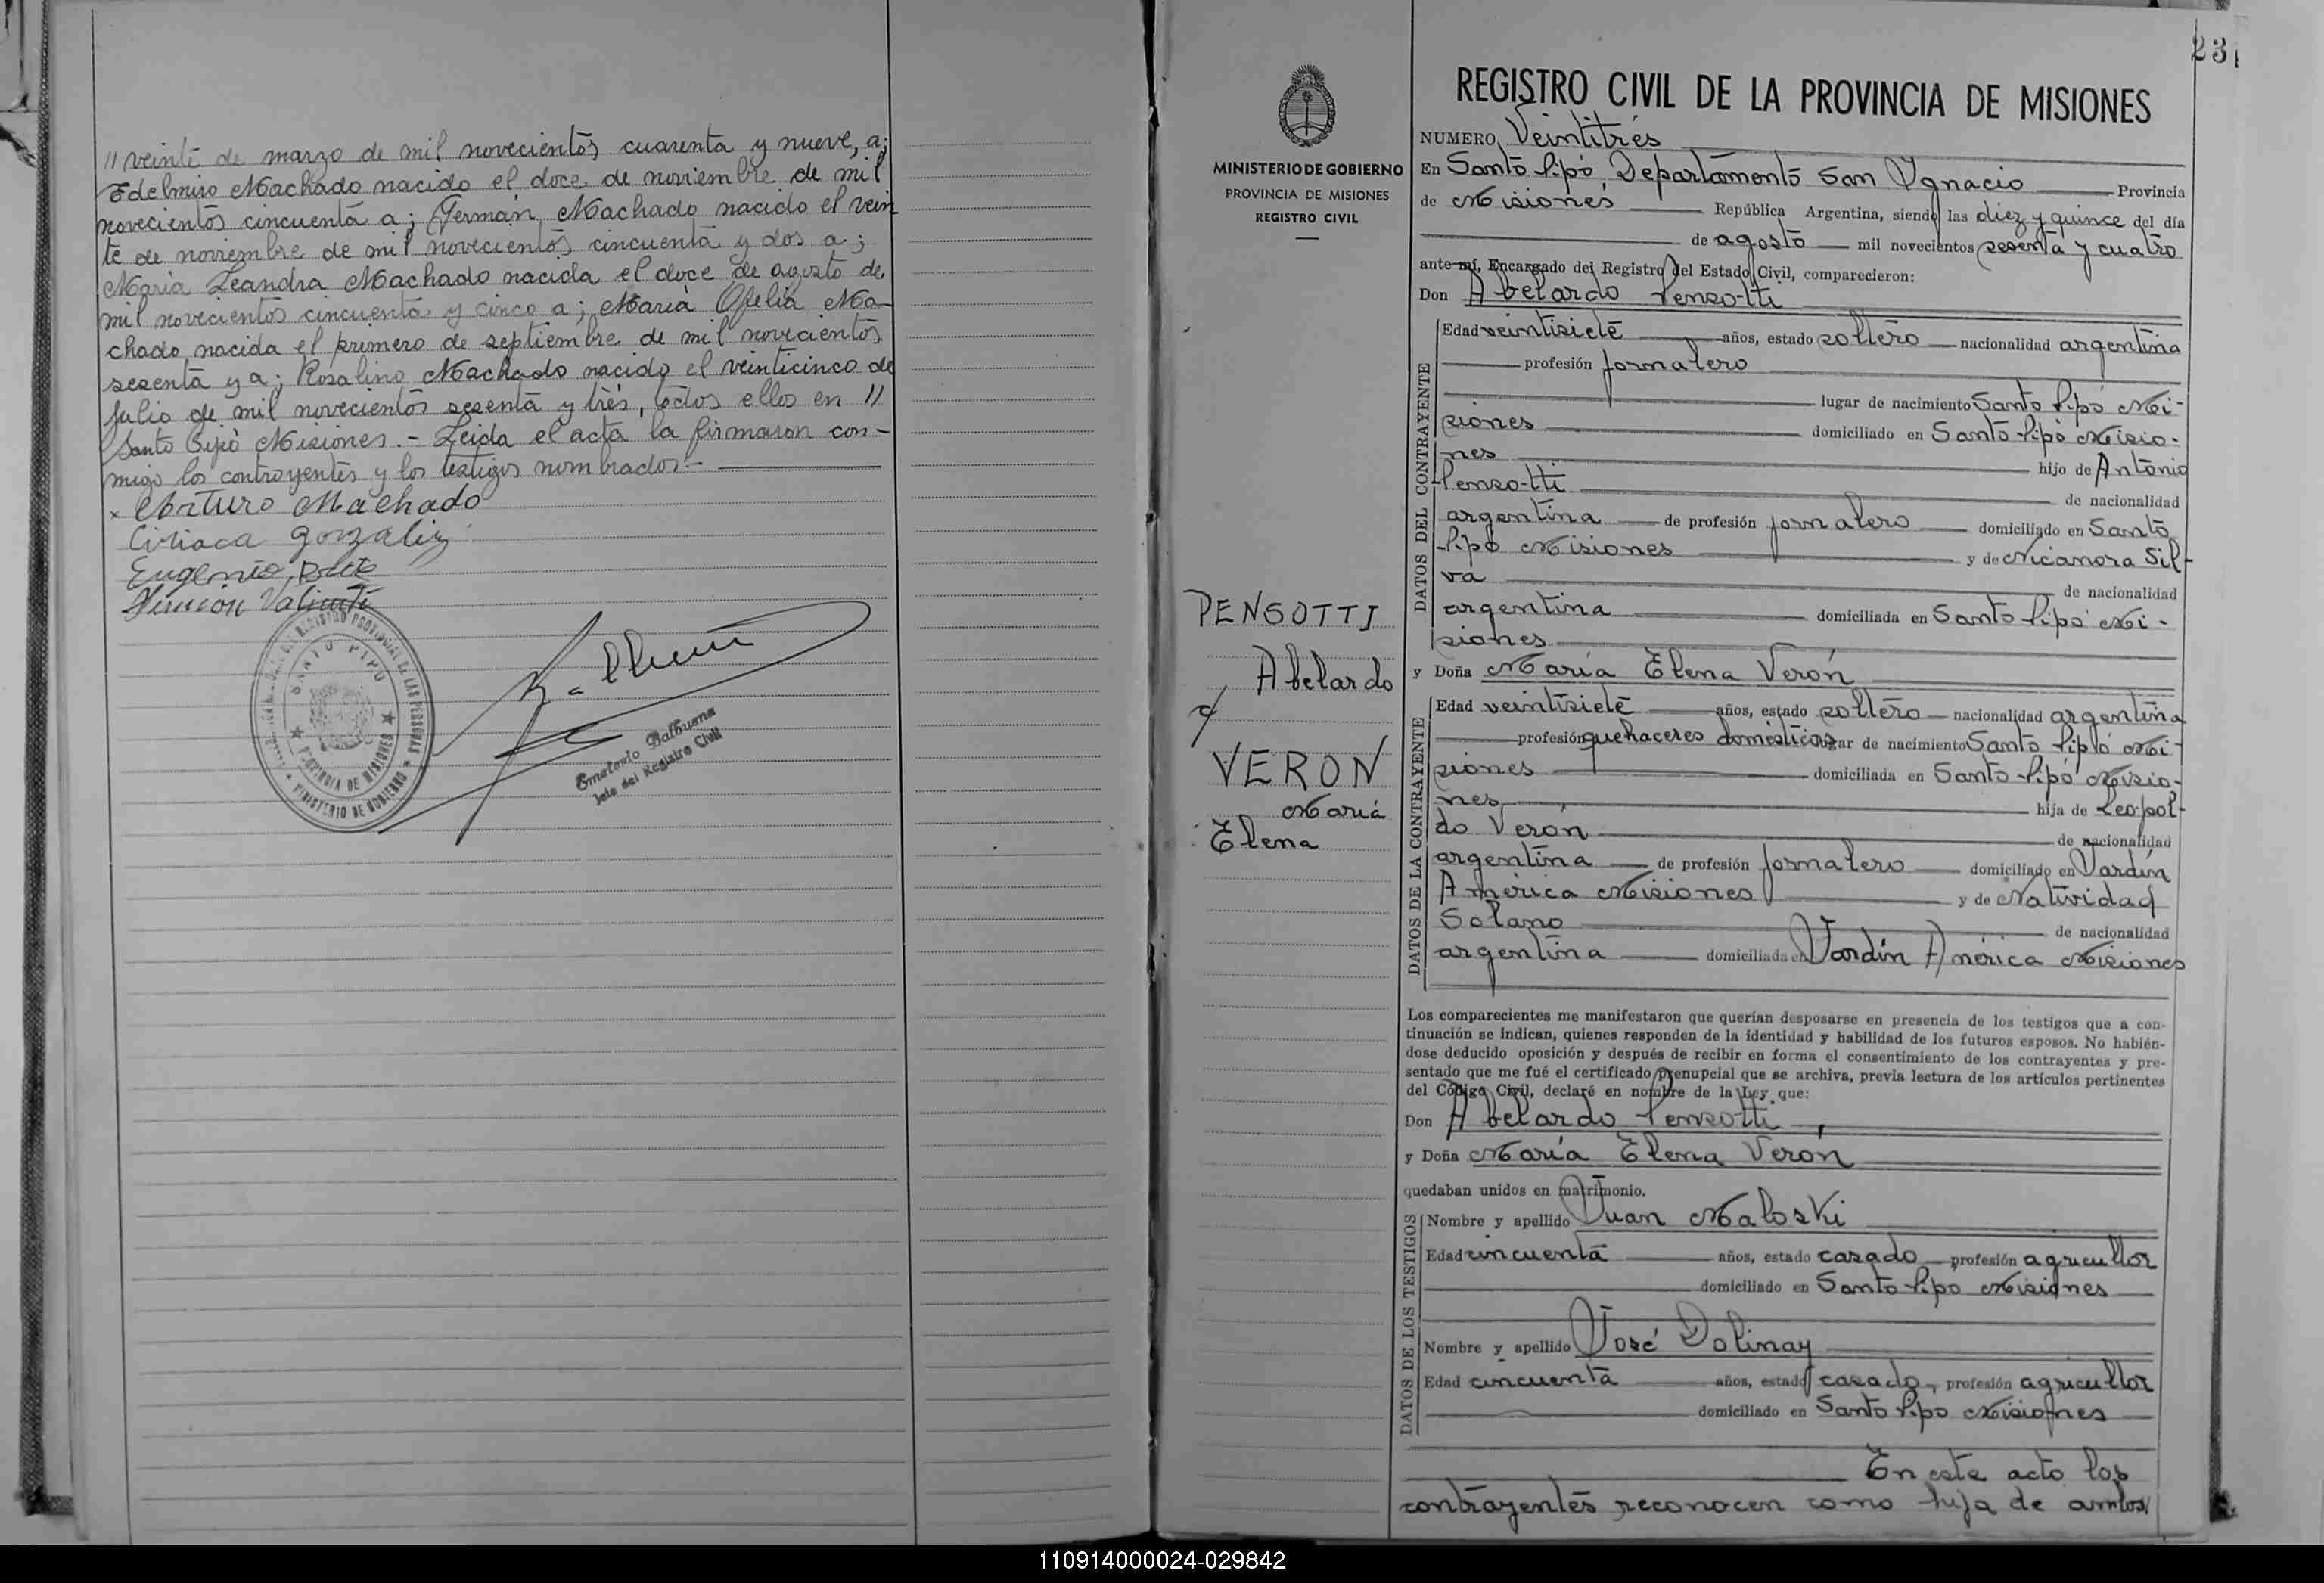 // veinte de marzo de mil novecientos cuarenta y nueve, a;
Edelmiro Machado nacido el doce de noviembre de mil
novecientos cincuenta a; Germán Machado nacido el vein
te de noviembre de mil novecientos cincuenta y dos a;
María Leandra Machado nacida el doce de agosto de
mil novecientos cincuenta y cinco a; María Ofelia Ma-
chado nacida el primero de septiembre de mil novecientos
sesenta y a; Rosalino Machado nacido el veinticinco de
Julio de mil novecientos sesenta y trés, todos ellos en //
Santo Pipó Misiones.- Leida el acta la firmaron con-
migo los contrayentes y los testigos nombrados.-
x Arturo Machado
Ciriaca gonzaliz
Eugenio
Valiente
SANTO PIPO
PROVINCIA DE MISIONES
MINISTERIO DE GOBIERNO
REGISTRO PROVINCIAL DE LAS PERSONAS
Emeterio Balbuena
Jefe del Registro Civil
231
MINISTERIO DE GOBIERNO
PROVINCIA DE MISIONES
REGISTRO CIVIL
PENSOTTI
Abelardo
c/
VERON
María
Elena
REGISTRO CIVIL DE LA PROVINCIA DE MISIONES
NUMERO Veintitrés
En Santo Pipó, Departamento San Ignacio Provincia
de Misiones, República Argentina, siendo las diez y quince del día
de agosto mil novecientos sesenta y cuatro
ante mí, Encargado del Registro del Estado Civil, comparecieron:
Don Abelardo Pensotti
DATOS DEL CONTRAYENTE
Edad veintisiete años, estado soltero nacionalidad argentina
profesión jornalero
lugar de nacimiento Santo Pipó Mi-
siones domiciliado en Santo Pipó Misio-
nes hijo de Antonio
Pensotti de nacionalidad
argentina de profesión jornalero domiciliado en Santo
Pipó Misiones y de Nicanora Sil-
va de nacionalidad
argentina domiciliada en Santo Pipó Mi-
siones
y Doña María Elena Verón
DATOS DE LA CONTRAYENTE
Edad veintisiete años, estado soltero nacionalidad argentina
profesión quehaceres domésticos lugar de nacimiento Santo Pipó Mi-
siones domiciliada en Santo Pipó Misio-
nes, hija de Leopol-
do Verón de nacionalidad
argentina de profesión jornalero domiciliado en Jardín
América Misiones y de Natividad
Solano de nacionalidad
argentina domiciliada en Jardín América Misiones
Los comparecientes me manifestaron que querían desposarse en presencia de los testigos que a con-
tinuación se indican, quienes responden de la identidad y habilidad de los futuros esposos. No habién-
dose deducido oposición y después de recibir en forma el consentimiento de los contrayentes y pre-
sentado que me fué el certificado prenupcial que se archiva, previa lectura de los artículos pertinentes
del Código Civil, declaré en nombre de la Ley que:
Don Abelardo Pensotti
y Doña María Elena Verón
quedaban unidos en matrimonio.
DATOS DE LOS TESTIGOS
Nombre y apellido Juan Maloski
Edad cincuenta años, estado casado profesión agricultor
domiciliado en Santo Pipó Misiones
Nombre y apellido José Dolinay
Edad cincuenta años, estado casado, profesión agricultor
domiciliado en Santo Pipó Misiones
En este acto los
contrayentes reconocen como hija de ambos/
110914000024-029842